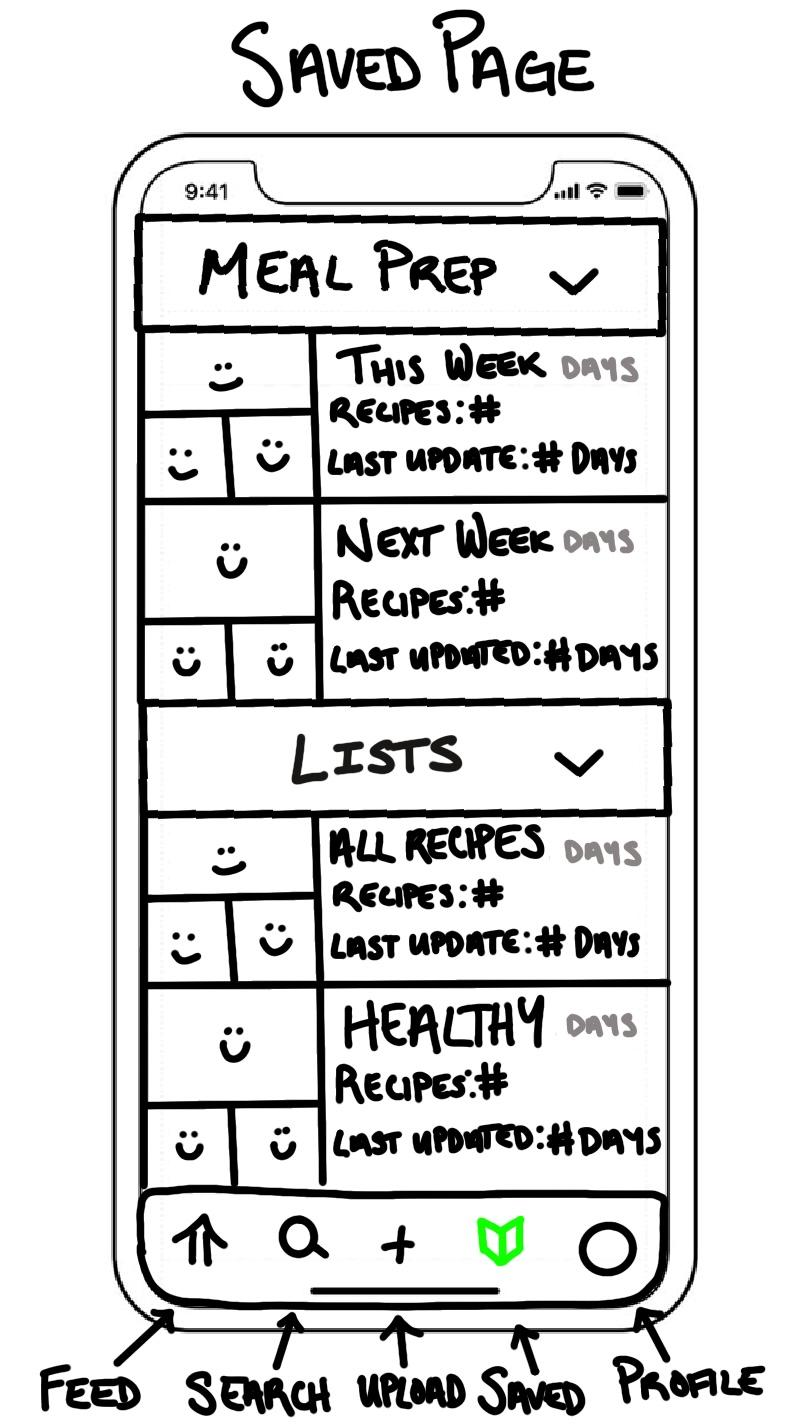 SAVED PAGE
9:41
MEAL PREP
THIS WEEK DAYS
RECIPES:#
LAST UPDATE:# DAYS
NEXT WEEK DAYS
RECIPES:#
LAST UPDATED:# DAYS
LISTS
ALL RECIPES DAYS
RECIPES:#
LAST UPDATE:# DAYS
HEALTHY DAYS
RECIPES:#
LAST UPDATED:# DAYS
FEED SEARCH UPLOAD SAVED PROFILE